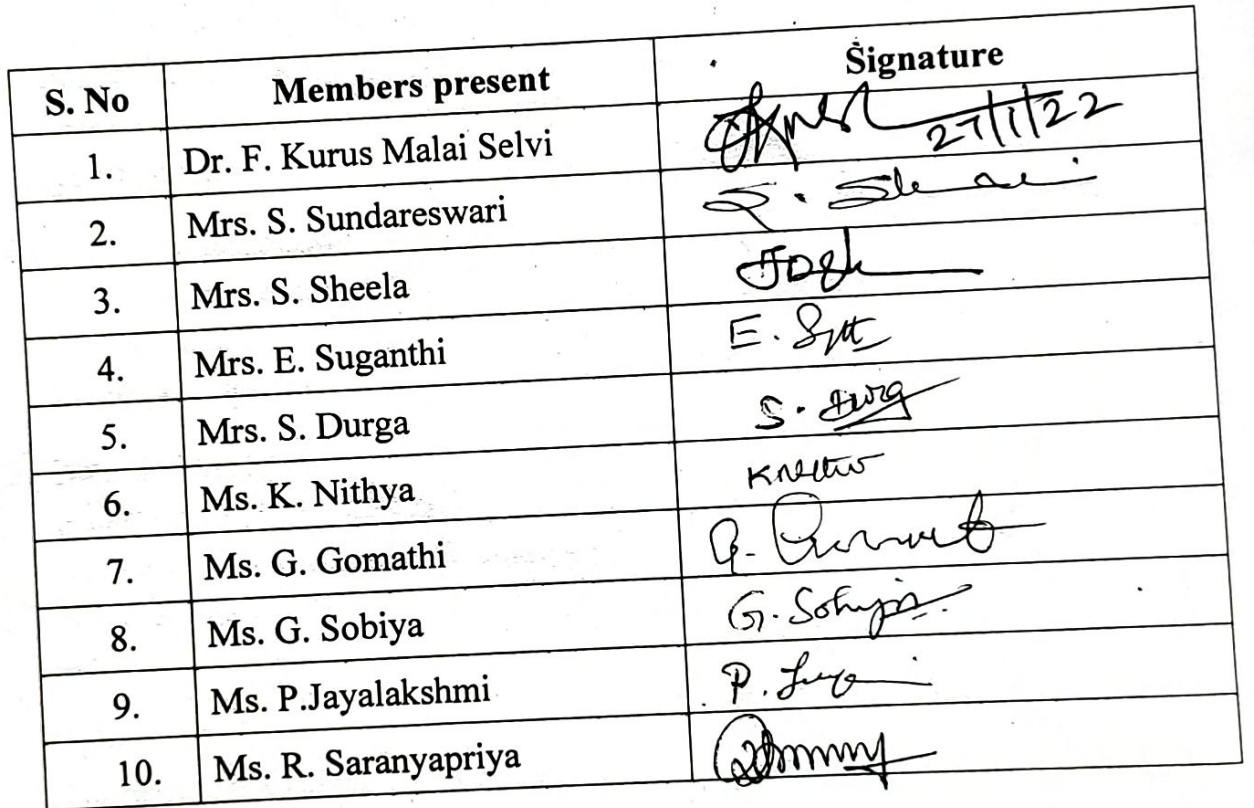 S. No Members present Signature
1. Dr. F. Kurus Malai Selvi 27/1/22
2. Mrs. S. Sundareswari S.
3. Mrs. S. Sheela
4. Mrs. E. Suganthi E.
5. Mrs. S. Durga S. Durga
6. Ms. K. Nithya
7. Ms. G. Gomathi G.
8. Ms. G. Sobiya G. Sobiya
9. Ms. P.Jayalakshmi P.
10. Ms. R. Saranyapriya